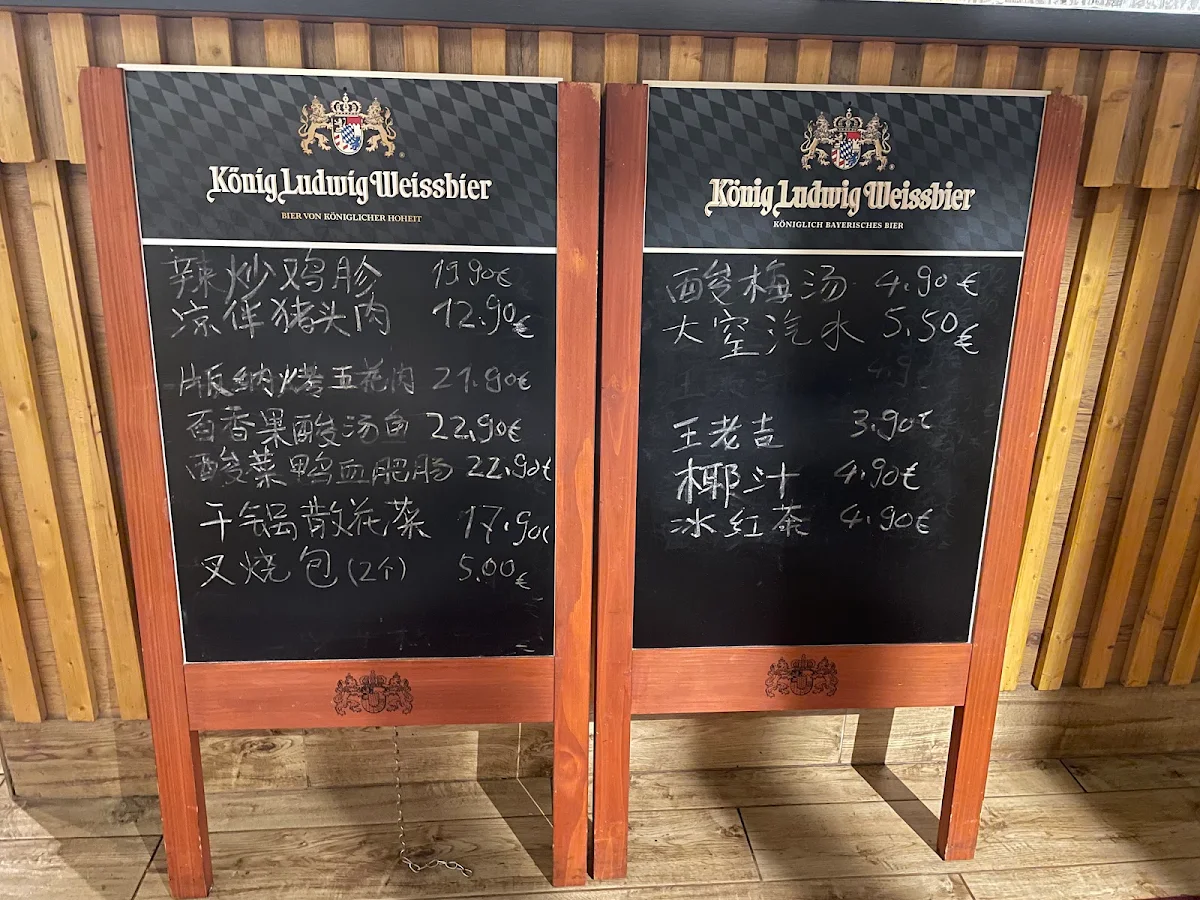 König Ludwig Weissbier
BIER VON KÖNIGLICHER HOHEIT
辣炒鸡胗 19.90€
凉伴猪头肉 12.90€
版纳烤五花肉 21.90€
百香果酸汤鱼 22.90€
酸菜鸭血肥肠 22.90€
干锅散花菜 17.90€
叉烧包(2个) 5.00€
König Ludwig Weissbier
KÖNIGLICH BAYERISCHES BIER
酸梅汤 4.90€
大窑汽水 5.50€
王老吉 3.90€
椰汁 4.90€
冰红茶 4.90€